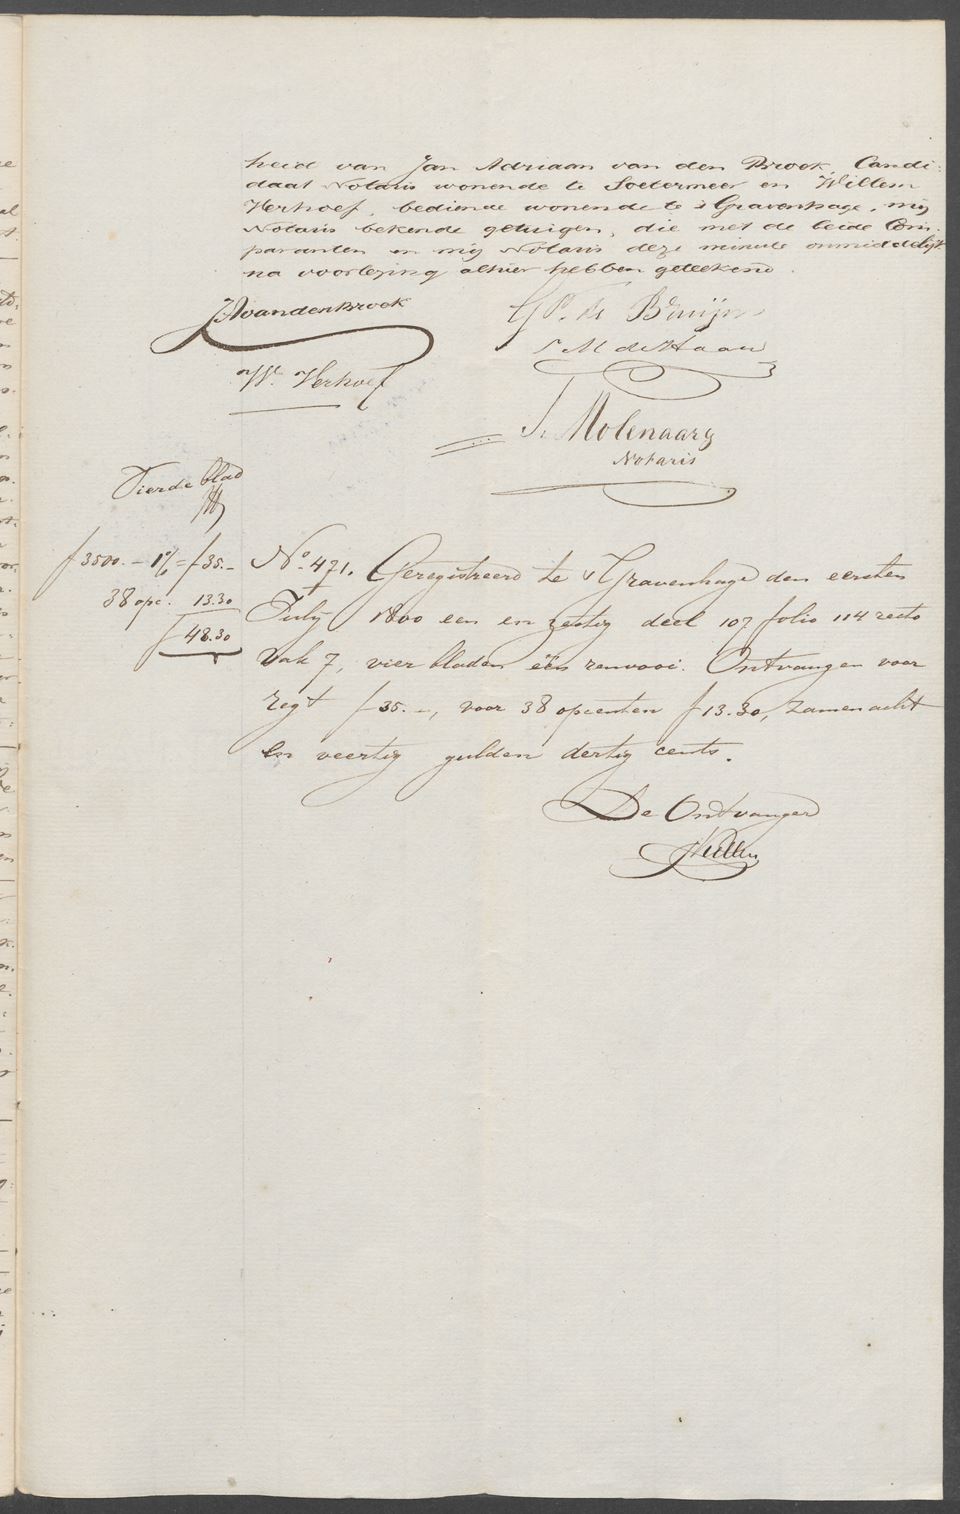 heid van Jan Adriaan van den Broek, Candi-
daat Notaris wonende te Soetermeer en Willem
Verhoef, bediende wonende te 's Gravenhage, mij
Notaris bekende getuigen, die met de beide Com-
paranten en mij Notaris deze minute onmiddelijk
na voorlezing alhier hebben geteekend.
JAvandenBroek
GP. de Bruijn
M de Haan
W. Verhoef
Molenaar
Notaris
Vierde blad
f 3500. - 1% = f 35.-
38 opc. 13.30
f 48.30
No. 471. Geregistreerd te 's Gravenhage den eersten
July 1800 een en zestig deel 107 folio 114 recto
vak 7, vier bladen één renvooi. Ontvangen voor
regt f 35.-, voor 38 opcenten f 13.30, zamen acht
en veertig gulden dertig cents.
De Ontvanger